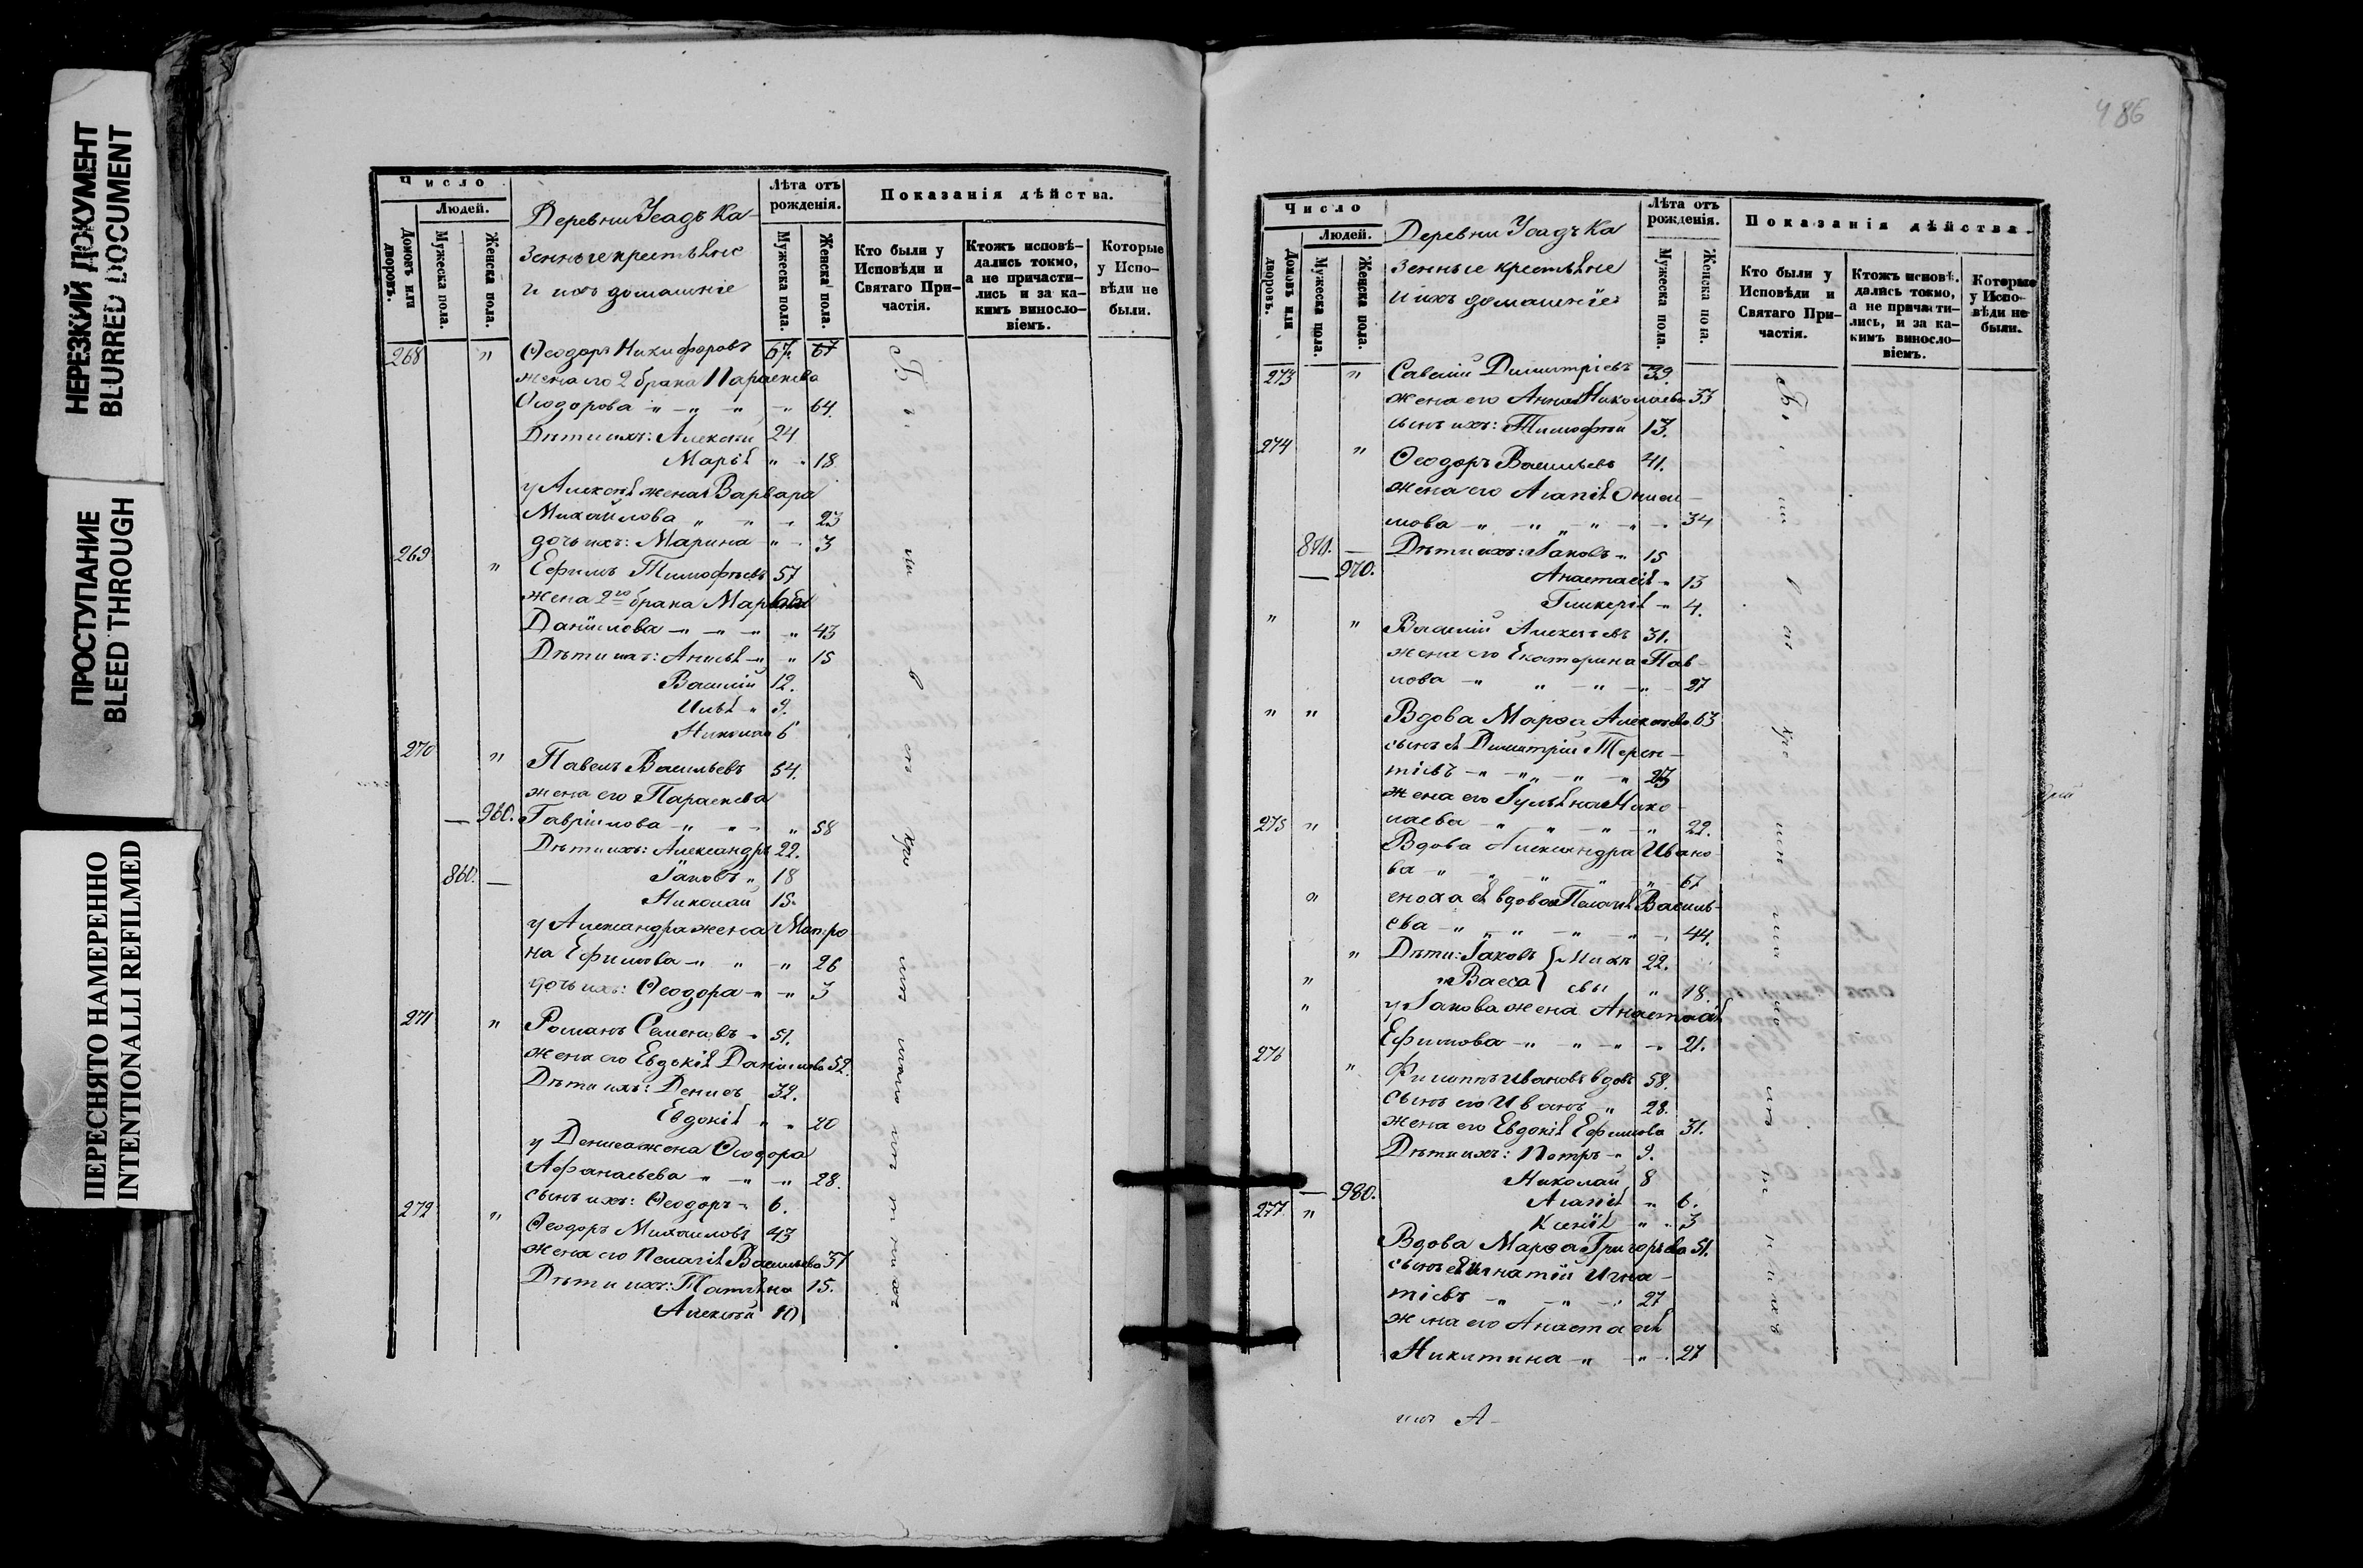 НЕРЕЗКИЙ ДОКУМЕНТ
BLURRED DOCUMENT
ПРОСТУПАНИЕ
BLEED THROUGH
ПЕРЕСНЯТО НАМЕРЕННО
INTENTIONALLI REFILMED
Число
Людей.
Домовъ или дворовъ.
Мужеска пола.
Женска пола.
Деревни Усадъ Ка-
зенные крестьяне
и ихъ домашніе
Лѣта отъ рожденія.
Мужеска пола.
Женска пола.
Показанія дѣйства.
Кто были у Исповѣди и Святаго При-частія.
Ктожъ исповѣ-дались токмо, а не причасти-лись и за ка-кимъ винносло-віемъ.
Которые у Испо-вѣди не были.
268 " Ѳеодоръ Никифоровъ 67. 67
жена его 2 брака Параскева
Ѳеодорова - " - " - " 64.
Дѣти ихъ: Алексѣй 24
Марья " " 18
у Алексѣя жена Варвара
Михайлова " " " 23
дочь ихъ: Марина " " 3
269 " Ефимъ Тимофѣевъ 57
жена 2го брака Марѳа
Даніилова - " - " - " 43
Дѣти ихъ: Анисья - " " 15
Василій 12.
Илья " 9.
Николай 6
270 " Павелъ Васильевъ 54.
жена его Параскева
— 960. Гавріилова - " - " " 58
Дѣти ихъ: Александръ 22.
860. — Іаковъ " 18
Николай 15.
у Александра жена Матро-
на Ефимова - " " - " 26
дочь ихъ: Ѳеодора - " - " 3
271 " Романъ Семеновъ - 51.
жена его Евдокія Даніилова 52.
Дѣти ихъ: Денисъ 32.
Евдокія " " 20
у Дениса жена Ѳеодора
Афанасьева - " - " - " 28.
сынъ ихъ: Ѳеодоръ - " 6.
272 " Ѳеодоръ Михаиловъ 43
жена его Пелагія Васильева 37
Дѣти ихъ: Татьяна 15.
Алексѣй 10
486
Число
Людей.
Домовъ или дворовъ.
Мужеска пола.
Женска пола.
Деревни Усадъ Ка
зенные крестьяне
и ихъ домашніе
Лѣта отъ рожденія.
Мужеска пола.
Женска пола.
Показанія дѣйства.
Кто были у Исповѣди и Святаго При-частія.
Ктожъ исповѣ-дались токмо, а не причасти-лись, и за ка-кимъ винносло-віемъ.
Которые у Испо-вѣди не были.
273 " Савелій Димитріевъ 39.
жена его Анна Николаева 33
сынъ ихъ: Тимофѣй 13.
274 " Ѳеодоръ Васильевъ 41.
жена его Агапія Ониси-
мова - " - " - " - " 34
870. — Дѣти ихъ: Іаковъ " 15
— 970. Анастасія " 13
Гликерія " 4.
" " Василій Алексѣевъ 31.
жена его Екатерина Пав-
лова - " " - " - " - 27
" " Вдова Марѳа Алексѣева 63
сынъ ея Димитрій Терен-
тіевъ - " - " - " - " 23
жена его Іульяна Нико-
275 " лаева - " " - " - " 22.
Вдова Александра Ивано
ва - " - " - " - " 67
" сноха ея вдова Пелагія Василь-
ева - " - " - " - " 44.
" Дѣти: Іаковъ 22.
" Васса " 18.
" у Іакова жена Анастасія
Ефимова - " - " - " - " 21.
276 " Филиппъ Ивановъ вдовъ 58.
сынъ его Иванъ " 28.
жена его Евдокія Ефимова 31.
Дѣти ихъ: Петръ - " 9.
Николай 8
— 980. Агапія - " 6.
277 " Ксенія " " 3
Вдова Марѳа Григорьева 51.
сынъ ея Игнатій Игна-
тіевъ - " - " - 27
жена его Анастасія
Никитина - " - " 27